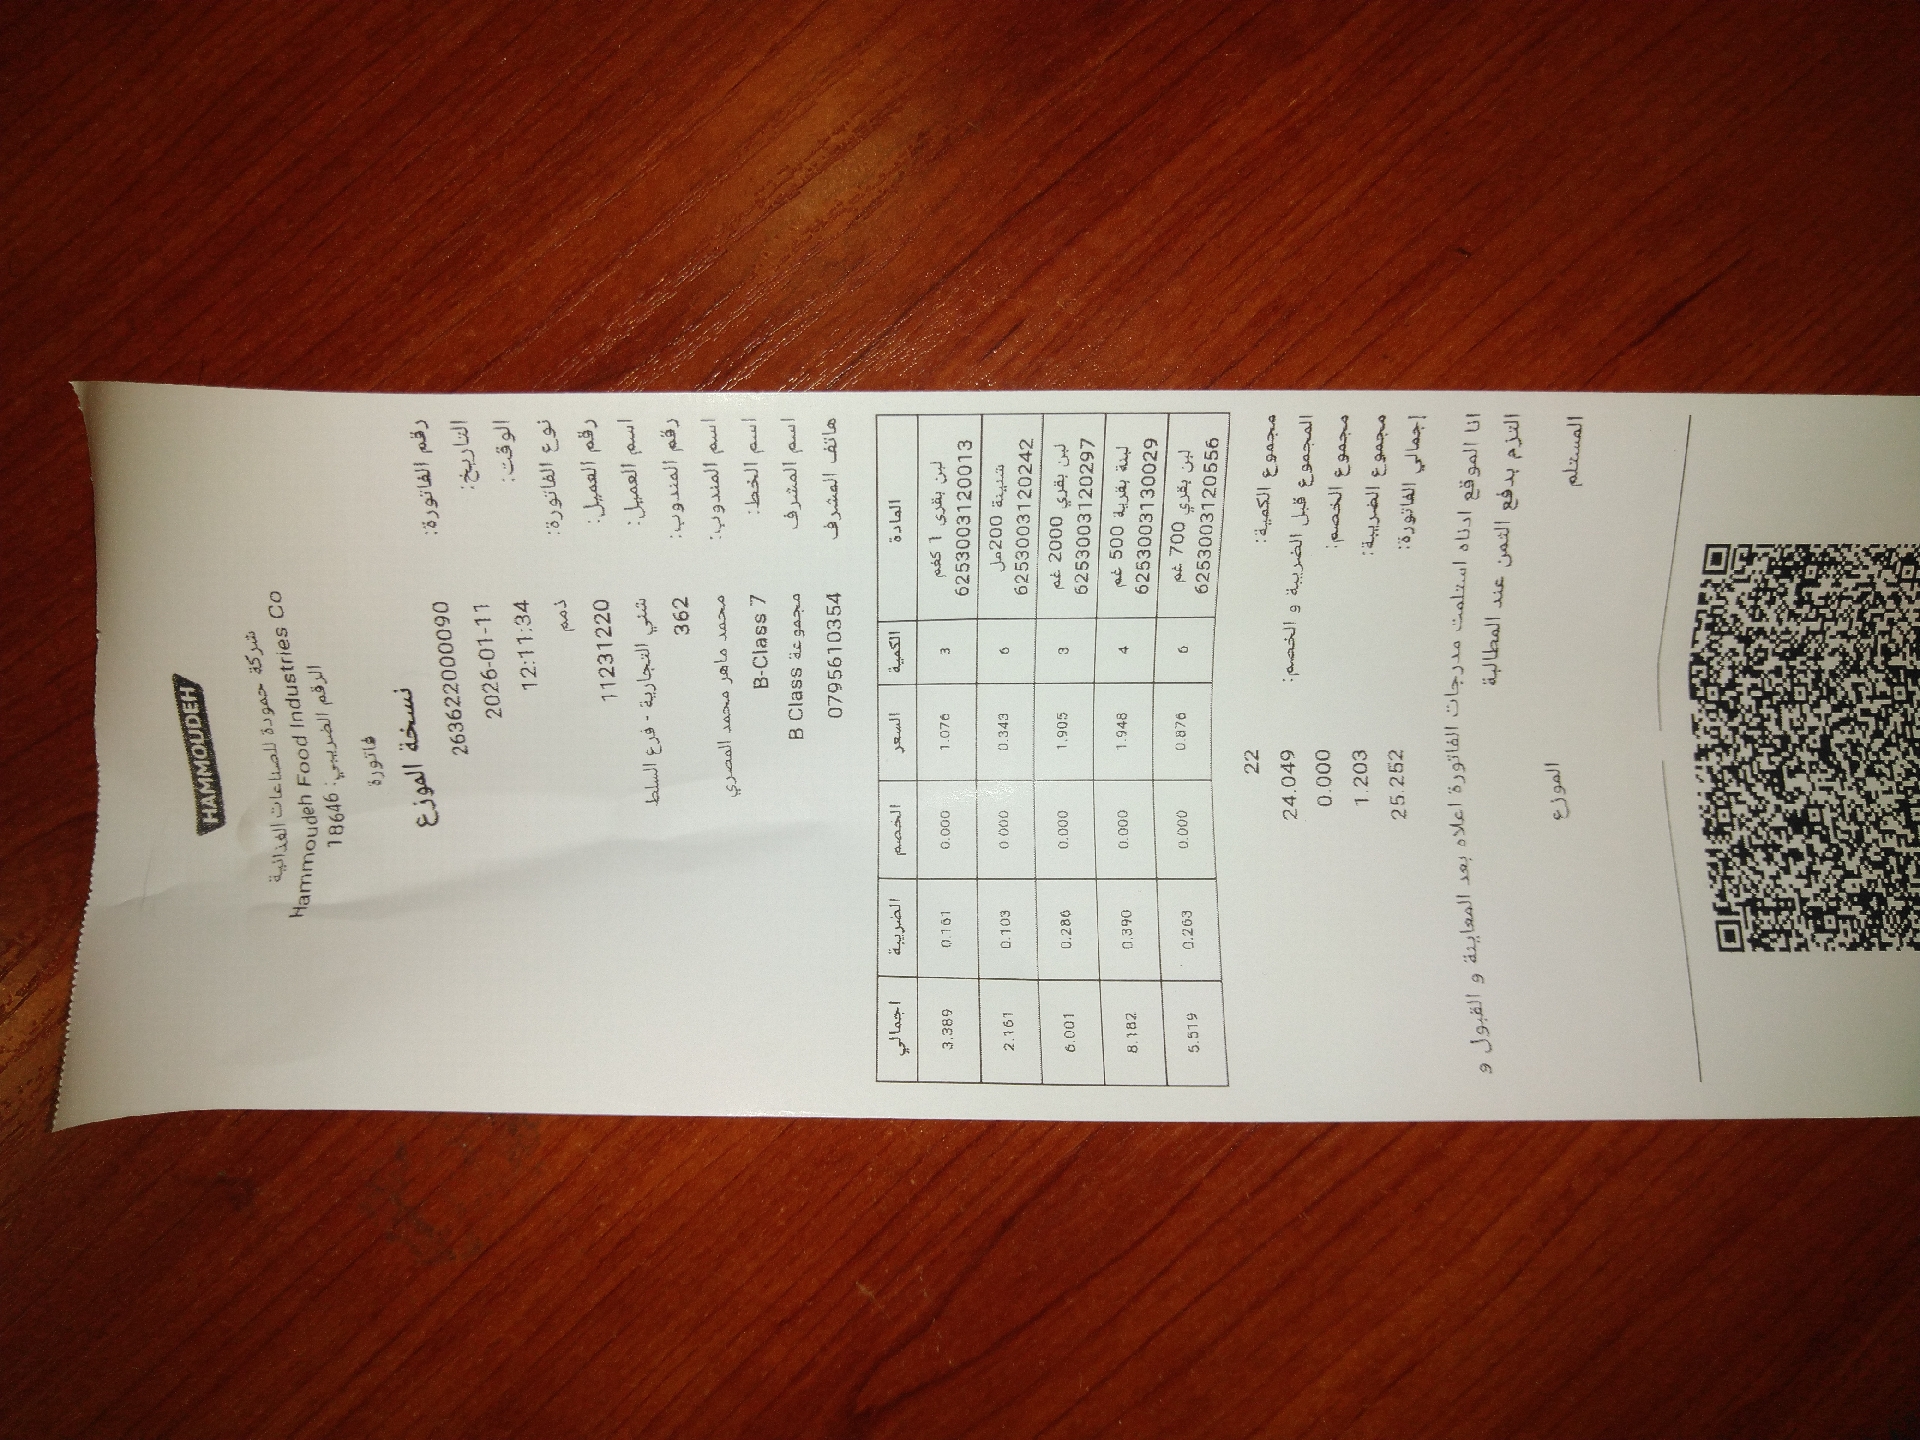 HAMMOUDEH
شركة حمودة للصناعات الغذائية
Hammoudeh Food Industries Co
الرقم الضريبي: 18646
فاتورة
نسخة الموزع
رقم الفاتورة: 26362200090
التاريخ: 2026-01-11
الوقت: 12:11:34
نوع الفاتورة: ذمم
رقم العميل: 11231220
اسم العميل: شني التجارية - فرع السلط
رقم المندوب: 362
اسم المندوب: محمد ماهر محمد المصري
اسم الخط: B-Class 7
اسم المشرف مجموعة B Class
هاتف المشرف 0795610354
المادة الكمية السعر الخصم الضريبة اجمالي
لبن بقري 1 كغم 3 1.076 0.000 0.161 3.389
6253003120013
شنينة 200مل 6 0.343 0.000 0.103 2.161
6253003120242
لبن بقري 2000 غم 3 1.905 0.000 0.286 6.001
6253003120297
لبنة بقرية 500 غم 4 1.948 0.000 0.390 8.182
6253003130029
لبن بقري 700 غم 6 0.876 0.000 0.263 5.519
6253003120556
مجموع الكمية: 22
المجموع قبل الضريبة و الخصم: 24.049
مجموع الخصم: 0.000
مجموع الضريبة: 1.203
اجمالي الفاتورة: 25.252
انا الموقع ادناه استلمت مدرجات الفاتورة اعلاه بعد المعاينة و القبول و
التزم بدفع الثمن عند المطالبة
المستلم الموزع